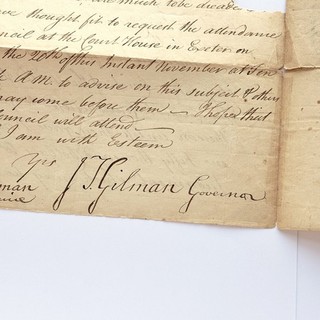 much to be
have thought fit to request the attendance
uncil at the Court House in Exeter on
the 20th of this Instant November at Ten
A.M. to advise on this subject & others
may come before them — I hope that
Council will attend
I am with Esteem
Yrs
J T Gilman Governor
man